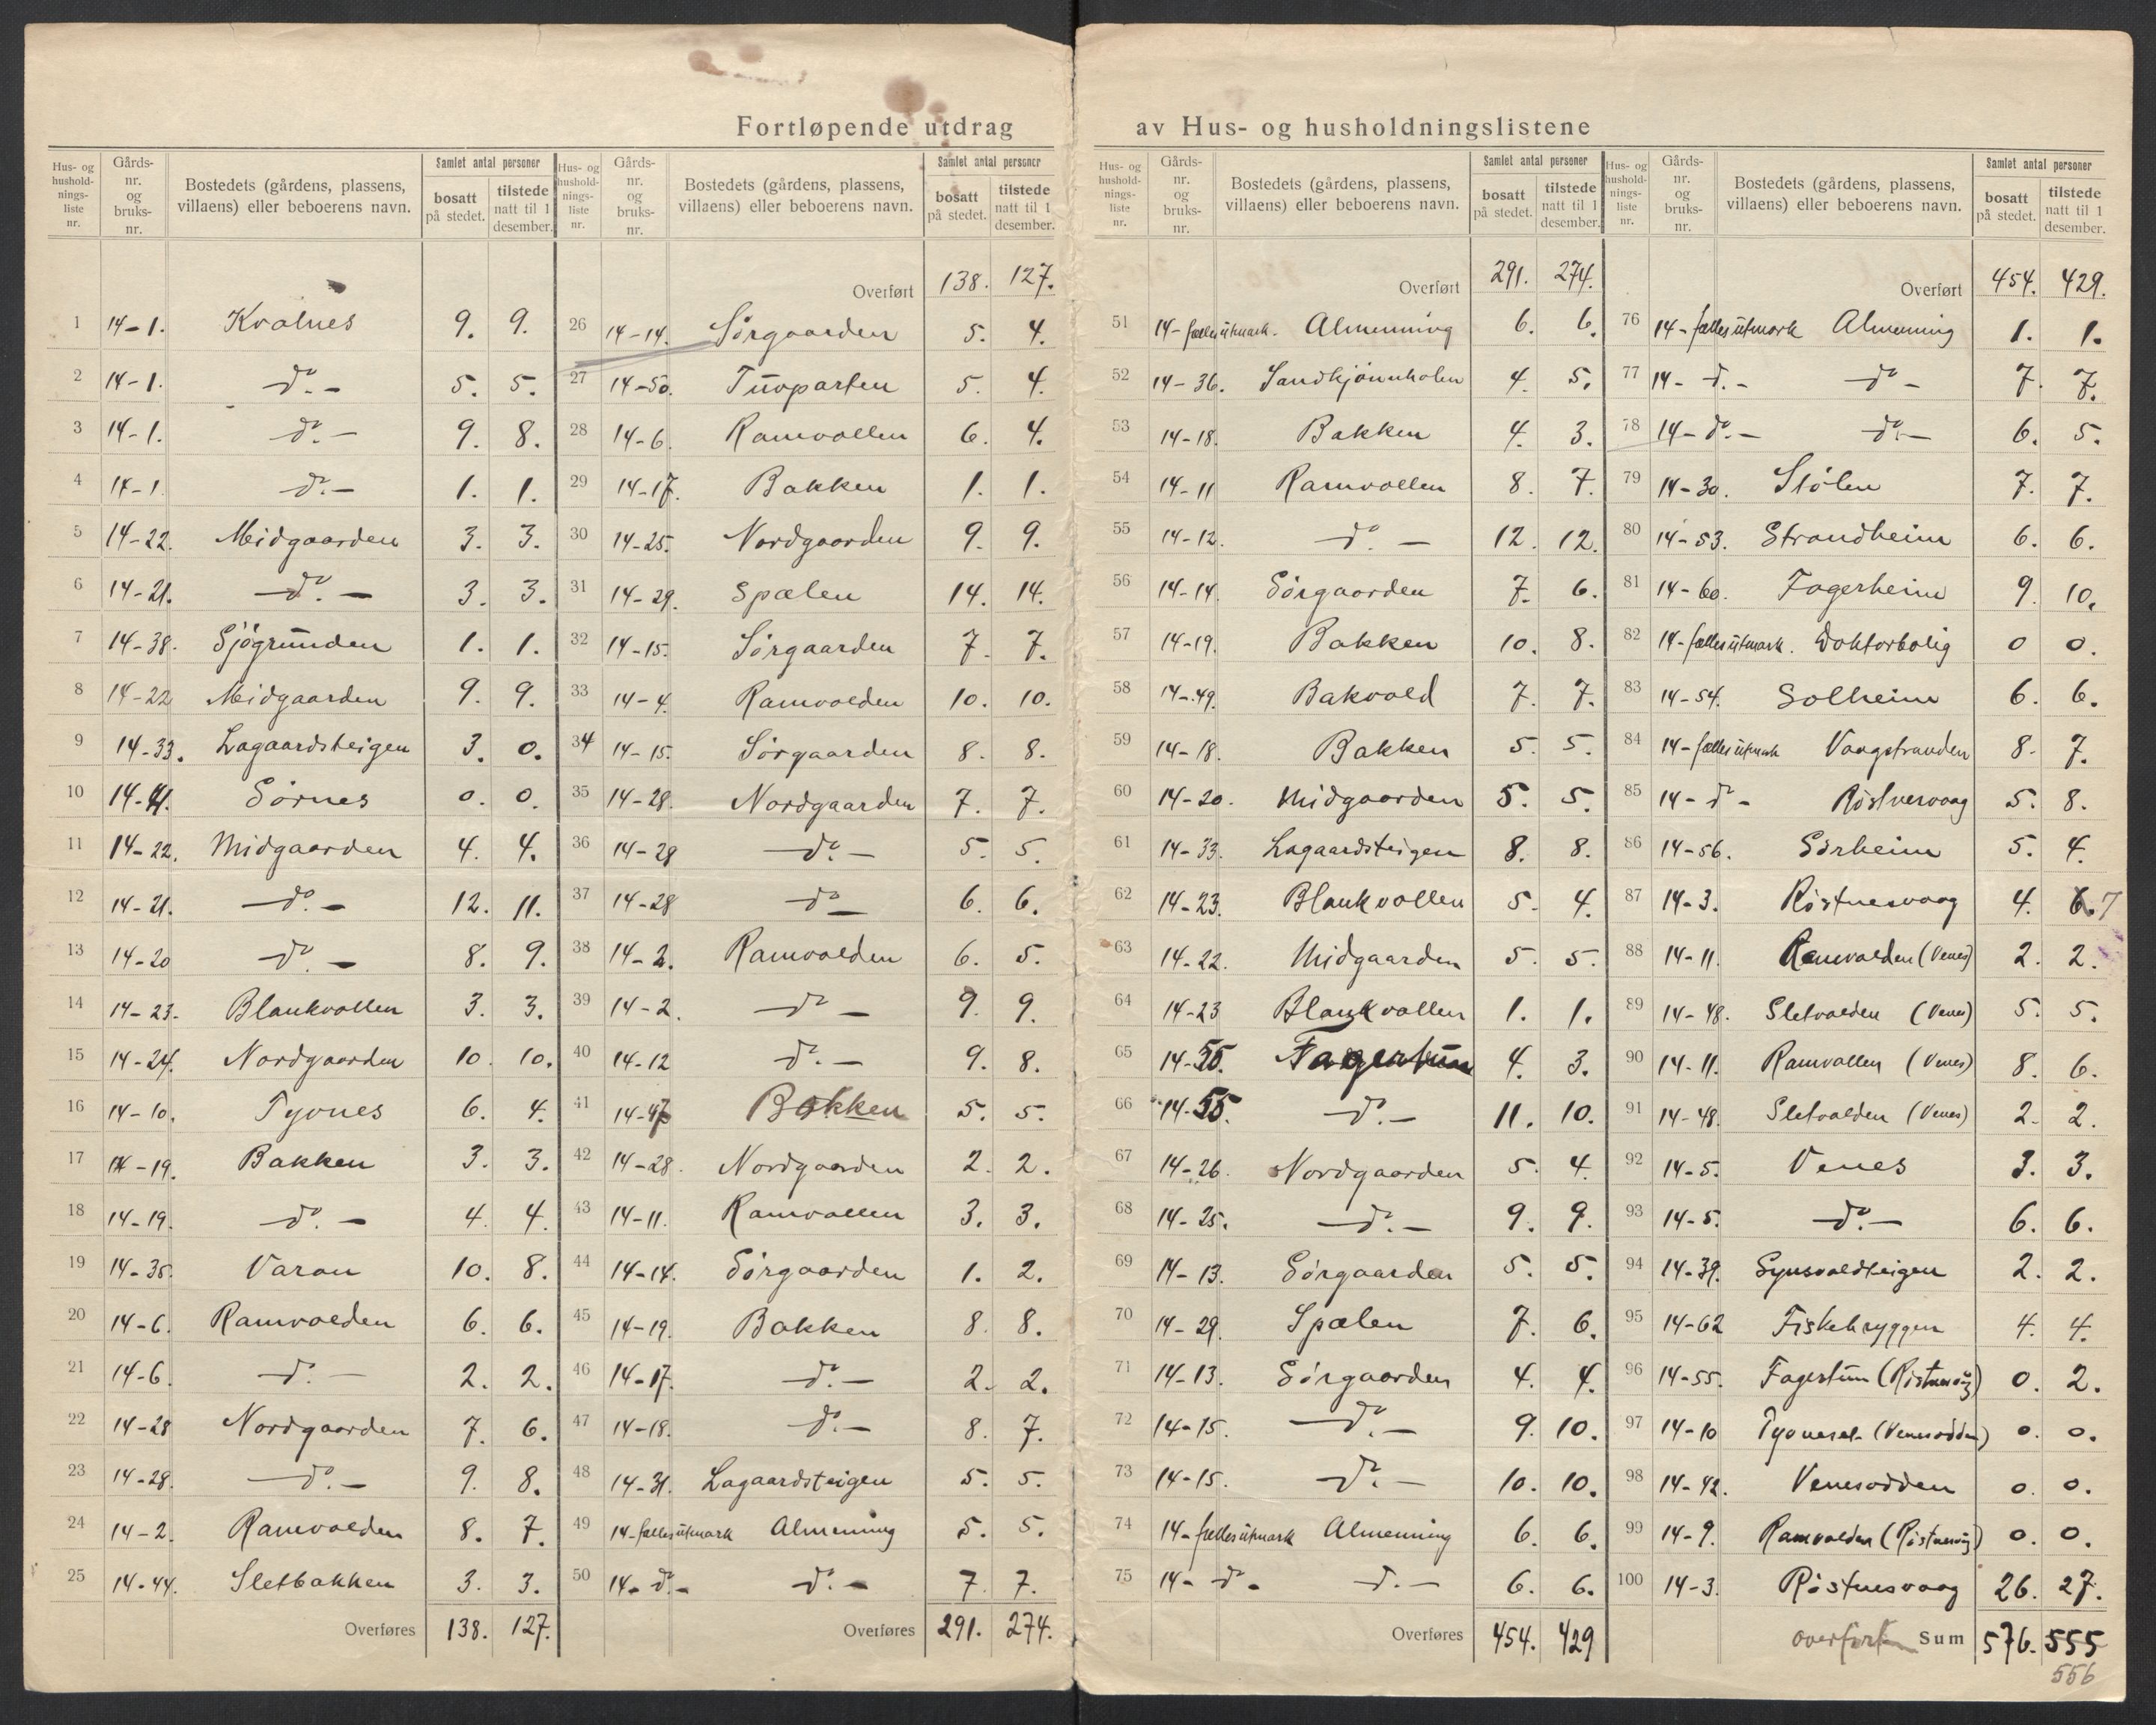 Fortløpende utdrag av Hus- og husholdningslistene
Hus- og husholdningsliste nr. | Gårds- nr. og bruks- nr. | Bostedets (gårdens, plassens, villaens) eller beboerens navn. | Samlet antal personer bosatt på stedet. | tilstede natt til 1 desember.
1 14-1. Kvalnes 9. 9.
2 14-1. do.- 5. 5.
3 14-1. do.- 9. 8.
4 14-1 do.- 1. 1.
5 14-22. Midgaarden 3. 3.
6 14-21. do.- 3. 3.
7 14-38. Sjøgrunden 1. 1.
8 14-22 Midgaarden 9. 9.
9 14-33. Lagaardsteigen 3. 0.
10 14-41. Sørnes 0. 0.
11 14-22. Midgaarden 4. 4.
12 14-21. do.- 12. 11.
13 14-20 do.- 8. 9.
14 14-23. Blankvollen 3. 3.
15 14-24. Nordgaarden 10. 10.
16 14-10. Tyvnes 6. 4.
17 14-19. Bakken 3. 3.
18 14-19. do.- 4. 4.
19 14-35. Varan 10. 8.
20 14-6. Ramvolden 6. 6.
21 14-6. do.- 2. 2.
22 14-28 Nordgaarden 7. 6.
23 14-28. do.- 9. 8.
24 14-2. Ramvolden 8. 7.
25 14-44. Sletbakken 3. 3.
Overføres 138. 127.
Hus- og husholdningsliste nr. | Gårds- nr. og bruks- nr. | Bostedets (gårdens, plassens, villaens) eller beboerens navn. | Samlet antal personer bosatt på stedet. | tilstede natt til 1 desember.
Overført 138. 127.
26 14-14. Sørgaarden 5. 4.
27 14-50. Tuvparten 5. 4.
28 14-6. Ramvollen 6. 4.
29 14-17. Bakken 1. 1.
30 14-25. Nordgaarden 9. 9.
31 14-29. Spælen 14. 14.
32 14-15. Sørgaarden 7. 7.
33 14-4. Ramvolden 10. 10.
34 14-15. Sørgaarden 8. 8.
35 14-28. Nordgaarden 7. 7.
36 14-28 do.- 5. 5.
37 14-28 do- 6. 6.
38 14-2. Ramvolden 6. 5.
39 14-2. do- 9. 9.
40 14-12 do.- 9. 8.
41 14-47 Bakken 5. 5.
42 14-28. Nordgaarden 2. 2.
43 14-11. Ramvollen 3. 3.
44 14-14. Sørgaarden 1. 2.
45 14-19. Bakken 8. 8.
46 14-17. do.- 2. 2.
47 14-18. do.- 8. 7.
48 14-31. Lagaardsteigen 5. 5.
49 14-fælles utmark Almenning 5. 5.
50 14-do.- do.- 7. 7.
Overføres 291. 274.
Hus- og husholdningsliste nr. | Gårds- nr. og bruks- nr. | Bostedets (gårdens, plassens, villaens) eller beboerens navn. | Samlet antal personer bosatt på stedet. | tilstede natt til 1 desember.
Overført 291. 274.
51 14-fælles utmark. Almenning 6. 6.
52 14-36. Sandkjønnholen 4. 5.
53 14-18. Bakken 4. 3.
54 14-11 Ramvollen 8. 7.
55 14-12. do.- 12. 12.
56 14-14. Sørgaarden 7. 6.
57 14-19. Bakken 10. 8.
58 14-49. Bakvold 7. 7.
59 14-18. Bakken 5. 5.
60 14-20. Midgaarden 5. 5.
61 14-33. Lagaardsteigen 8. 8.
62 14-23. Blankvollen 5. 4.
63 14-22. Midgaarden 5. 5.
64 14-23 Blankvollen 1. 1.
65 14-55. Fagertun 4. 3.
66 14-55. do.- 11. 10.
67 14-26. Nordgaarden 5. 4.
68 14-25. do.- 9. 9.
69 14-13. Sørgaarden 5. 5.
70 14-29. Spælen 7. 6.
71 14-13. Sørgaarden 4. 4.
72 14-15. do.- 9. 10.
73 14-15. do.- 10. 10.
74 14-fælles utmark Almenning 6. 6.
75 14-do- do.- 6. 6.
Overføres 454. 429
Hus- og husholdningsliste nr. | Gårds- nr. og bruks- nr. | Bostedets (gårdens, plassens, villaens) eller beboerens navn. | Samlet antal personer bosatt på stedet. | tilstede natt til 1 desember.
Overført 454. 429.
76 14-fælles utmark Almenning 1. 1.
77 14-do.- do- 7. 7.
78 14-do.- do.- 6. 5.
79 14-30. Stølen 7. 7.
80 14-53. Strandheim 6. 6.
81 14-60. Fagerheim 9. 10.
82 14-fælles utmark. Doktorbolig 0 0.
83 14-54. Solheim 6. 6.
84 14-fælles utmark Vaagstranden 8. 7.
85 14-do- Røstnesvaag 5. 8.
86 14-56. Sørheim 5. 4.
87 14-3. Røstnesvaag 4. 6. 7
88 14-11. Ramvolden (Venes) 2. 2.
89 14-48. Sletvolden (Venes) 5. 5.
90 14-11. Ramvollen (Venes) 8. 6.
91 14-48. Sletvolden (Venes) 2. 2.
92 14-5. Venes 3. 3.
93 14-5. do.- 6. 6.
94 14-39. Synsvoldteigen 2. 2.
95 14-62 Fiskebryggen 4. 4.
96 14-55. Fagertun (Røstnesvåg) 0. 2.
97 14-10 (Venesodden) 0. 0.
98 14-42. Venesodden 0. 0.
99 14-9. Ramvolden (Røstnesvåg) 0. 0.
100 14-3. Røstnesvaag 26. 27.
Sum 576. 555
556